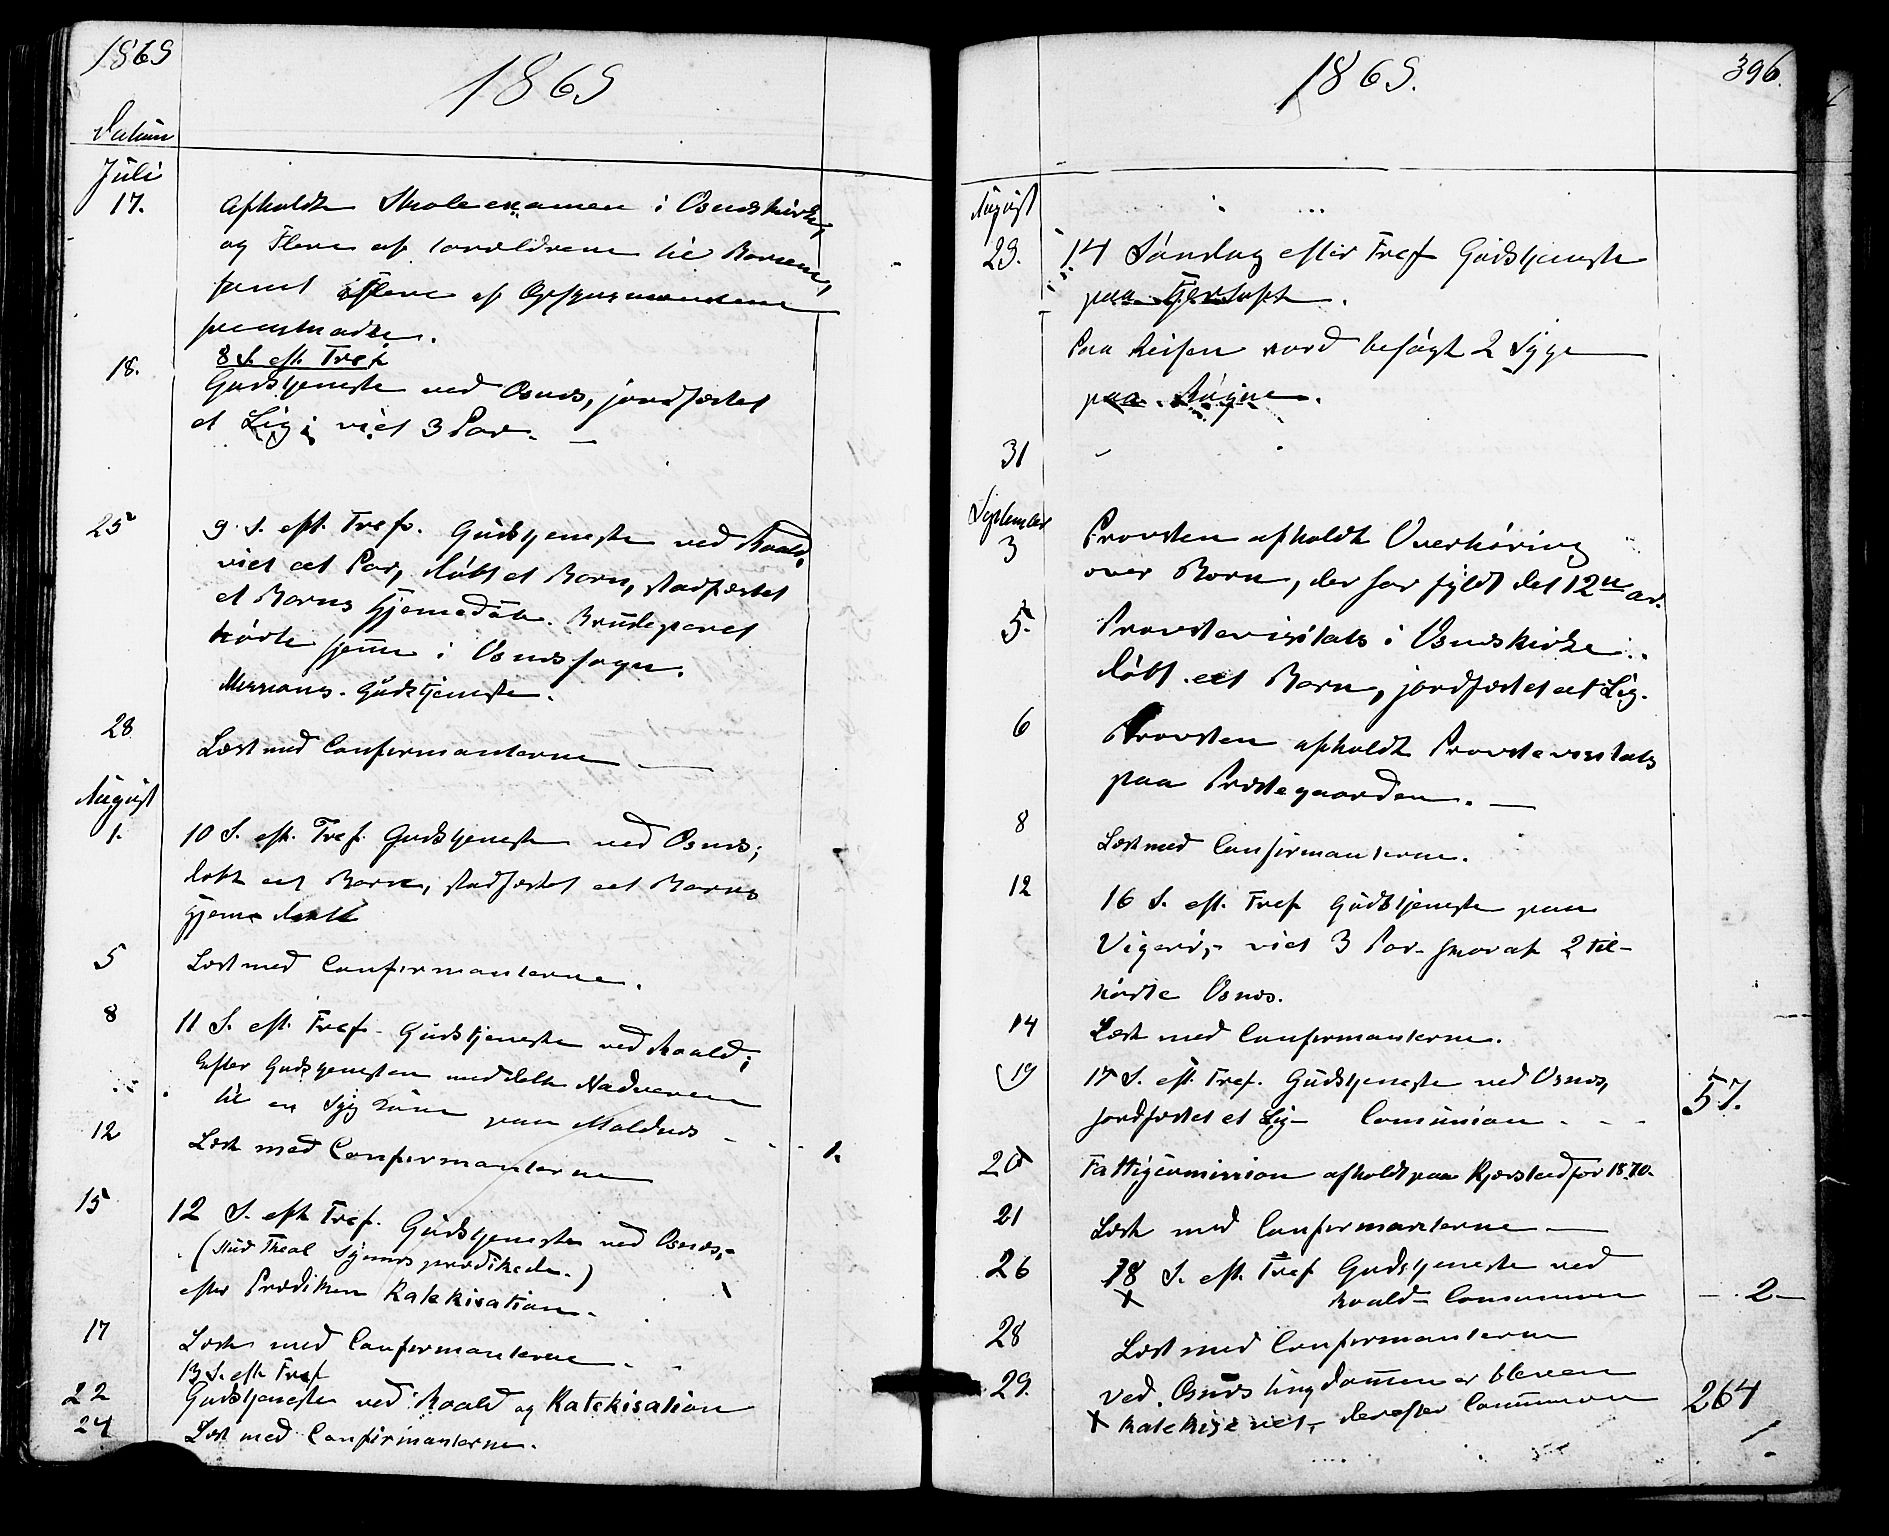 1869
1869
Datum
Juli
17. Afholdt Skoleexamen i Osnæskirke,
og Flere af Forældrene til Børnene,
samt flere af Opsynsmændene
fremmødte.
18. 8 S. eft. Tref.
Gudstjeneste ved Osnæs, jordfæstet
et Lig; viet 3 Par. —
25 9 S. eft. Tref. Gudstjeneste ved Roald,
viet et Par, døbt et Barn, stadfæstet
et Barns Hjemedåb. Brudeparet
hørte hjem i Osnæs sogn.
Missions-Gudstjeneste.
28 Læst med Confirmanterne —
August
1. 10 S. eft. Tref. Gudstjeneste ved Osnæs;
døbt eet Barn, stadfæstet eet Barns
Hjemedaab
5 Læst med Confirmanterne.
8 11 S. eft. Tref. Gudstjeneste ved Roald;
Efter Gudstjenesten meddelte Nadveren
til en Syg Kone paa Moldnæs - - - 1.
12 Læst med Confirmanterne
15 12 S. eft Tref. Gudstjeneste ved Osnæs,-
(Stud Theol prædikede.)
efter Prædiken Katekisation.
17 Læst med Confirmanterne.
13 S. eft. Tref
22 Gudstjeneste ved Roald og Katekisation
24 Læst med Confirmanterne.
1869.
396.
August
29. 14 Søndag efter Tref Gudstjeneste
paa Fjørtoft.
Paa Reisen vard besøgt 2 Syge
paa Røgne.
31
September
3 Provsten afholdt Overhøring
over Børn, der har fyldt det 12te aar.
5. Provstevisitats i Osnæskirke.
døbt eet Barn, jordfæstet eet Lig.
6 Provsten afholdt Provstevisitats
paa Præstegaarden. —
8 Læst med Confirmanterne.
12 16 S. eft. Tref Gudstjeneste paa
Vigerø,- viet 3 Par- hvoraf 2 til-
hørte Osnæs.
14 Læst med Confirmanterne.
19 17 S. eft. Tref. Gudstjeneste ved Osnæs,
jordfæstet et Lig- Comunion - - - 57.
20 Fattigcomission afholdt paa Kjærstad for 1870.
21 Læst med Confirmanterne —
26 18 S. eft. Tref Gudstjeneste ved
X Roald- Comunion — 2 —
28 Læst med Confirmanterne
29. Ved Osnæs Ungdommen er bleven
X Katekiseret, derefter Communion 264